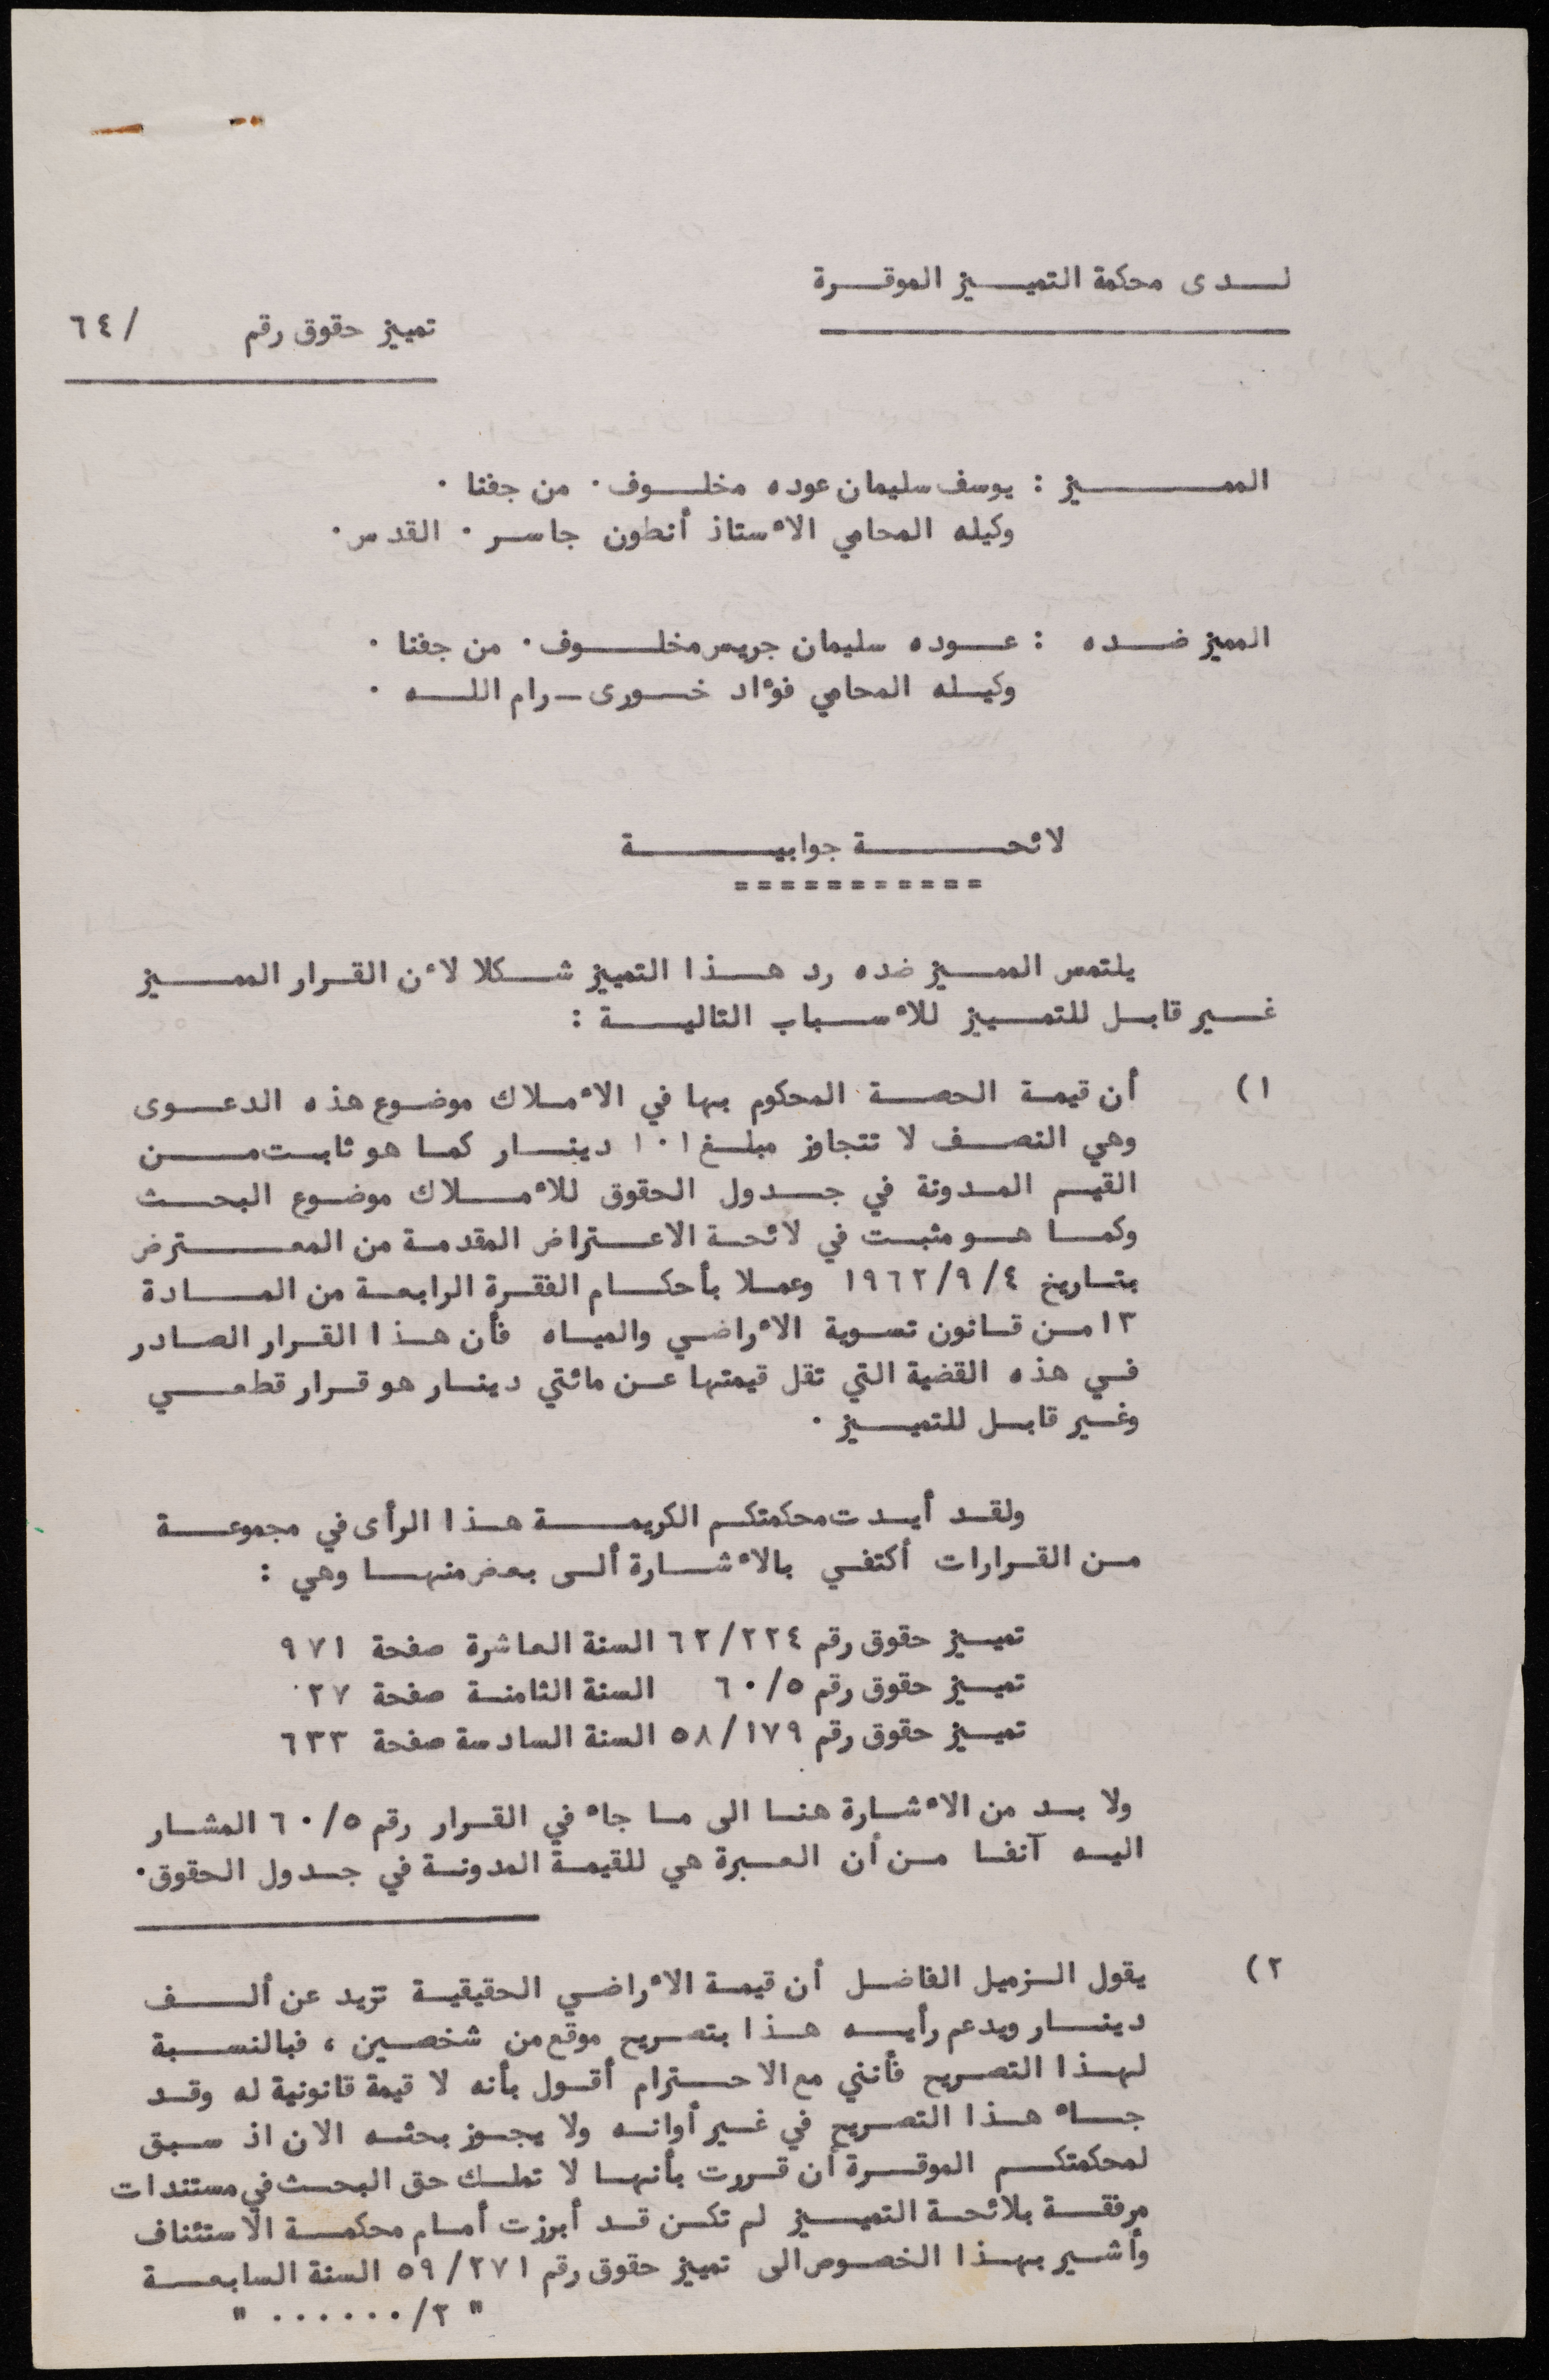 لدى محكمة التمييز الموقرة
تمييز حقوق رقم / ٦٤
المميز : يوسف سليمان عوده مخلوف . من جفنا .
وكيله المحامي الأستاذ أنطون جاسر . القدس .
المميز ضده : عوده سليمان جريس مخلوف . من جفنا .
وكيله المحامي فؤاد خورى - رام الله .
لائحة جوابية
===========
يلتمس المميز ضده رد هذا التمييز شكلا لأن القرار المميز
غير قابل للتمييز للأسباب التالية :
١) أن قيمة الحصة المحكوم بها في الأملاك موضوع هذه الدعوى
وهي النصف لا تتجاوز مبلغ ١٠١ دينار كما هو ثابت من
القيم المدونة في جدول الحقوق للأملاك موضوع البحث
وكما هو مثبت في لائحة الاعتراض المقدمة من المعترض
بتاريخ ١٩٦٢/٩/٤ وعملا بأحكام الفقرة الرابعة من المادة
١٣ من قانون تسوية الأراضي والمياه فأن هذا القرار الصادر
في هذه القضية التي تقل قيمتها عن مائتي دينار هو قرار قطعي
وغير قابل للتمييز .
ولقد أيدت محكمتكم الكريمة هذا الرأى في مجموعة
من القرارات أكتفي بالأشارة ألى بعض منها وهي :
تمييز حقوق رقم ٦٢/٢٢٤ السنة العاشرة صفحة ٩٧١
تمييز حقوق رقم ٦٠/٥ السنة الثامنة صفحة ٢٧
تمييز حقوق رقم ٥٨/١٧٩ السنة السادسة صفحة ٦٣٣
ولا بد من الأشارة هنا الى ما جاء في القرار رقم ٦٠/٥ المشار
اليه آنفا من أن العبرة هي للقيمة المدونة في جدول الحقوق .
٢) يقول الزميل الفاضل أن قيمة الأراضي الحقيقية تزيد عن ألف
دينار ويدعم رأيه هذا بتصريح موقع من شخصين ، فبالنسبة
لهذا التصريح فأنني مع الاحترام أقول بأنه لا قيمة قانونية له وقد
جاء هذا التصريح في غير أوانه ولا يجوز بحثه الان اذ سبق
لمحكمتكم الموقرة أن قررت بأنها لا تملك حق البحث في مستندات
مرفقة بلائحة التمييز لم تكن قد أبرزت أمام محكمة الاستئناف
وأشير بهذا الخصوص الى تمييز حقوق رقم ٥٩/٢٧١ السنة السابعة
" ٢/...... "